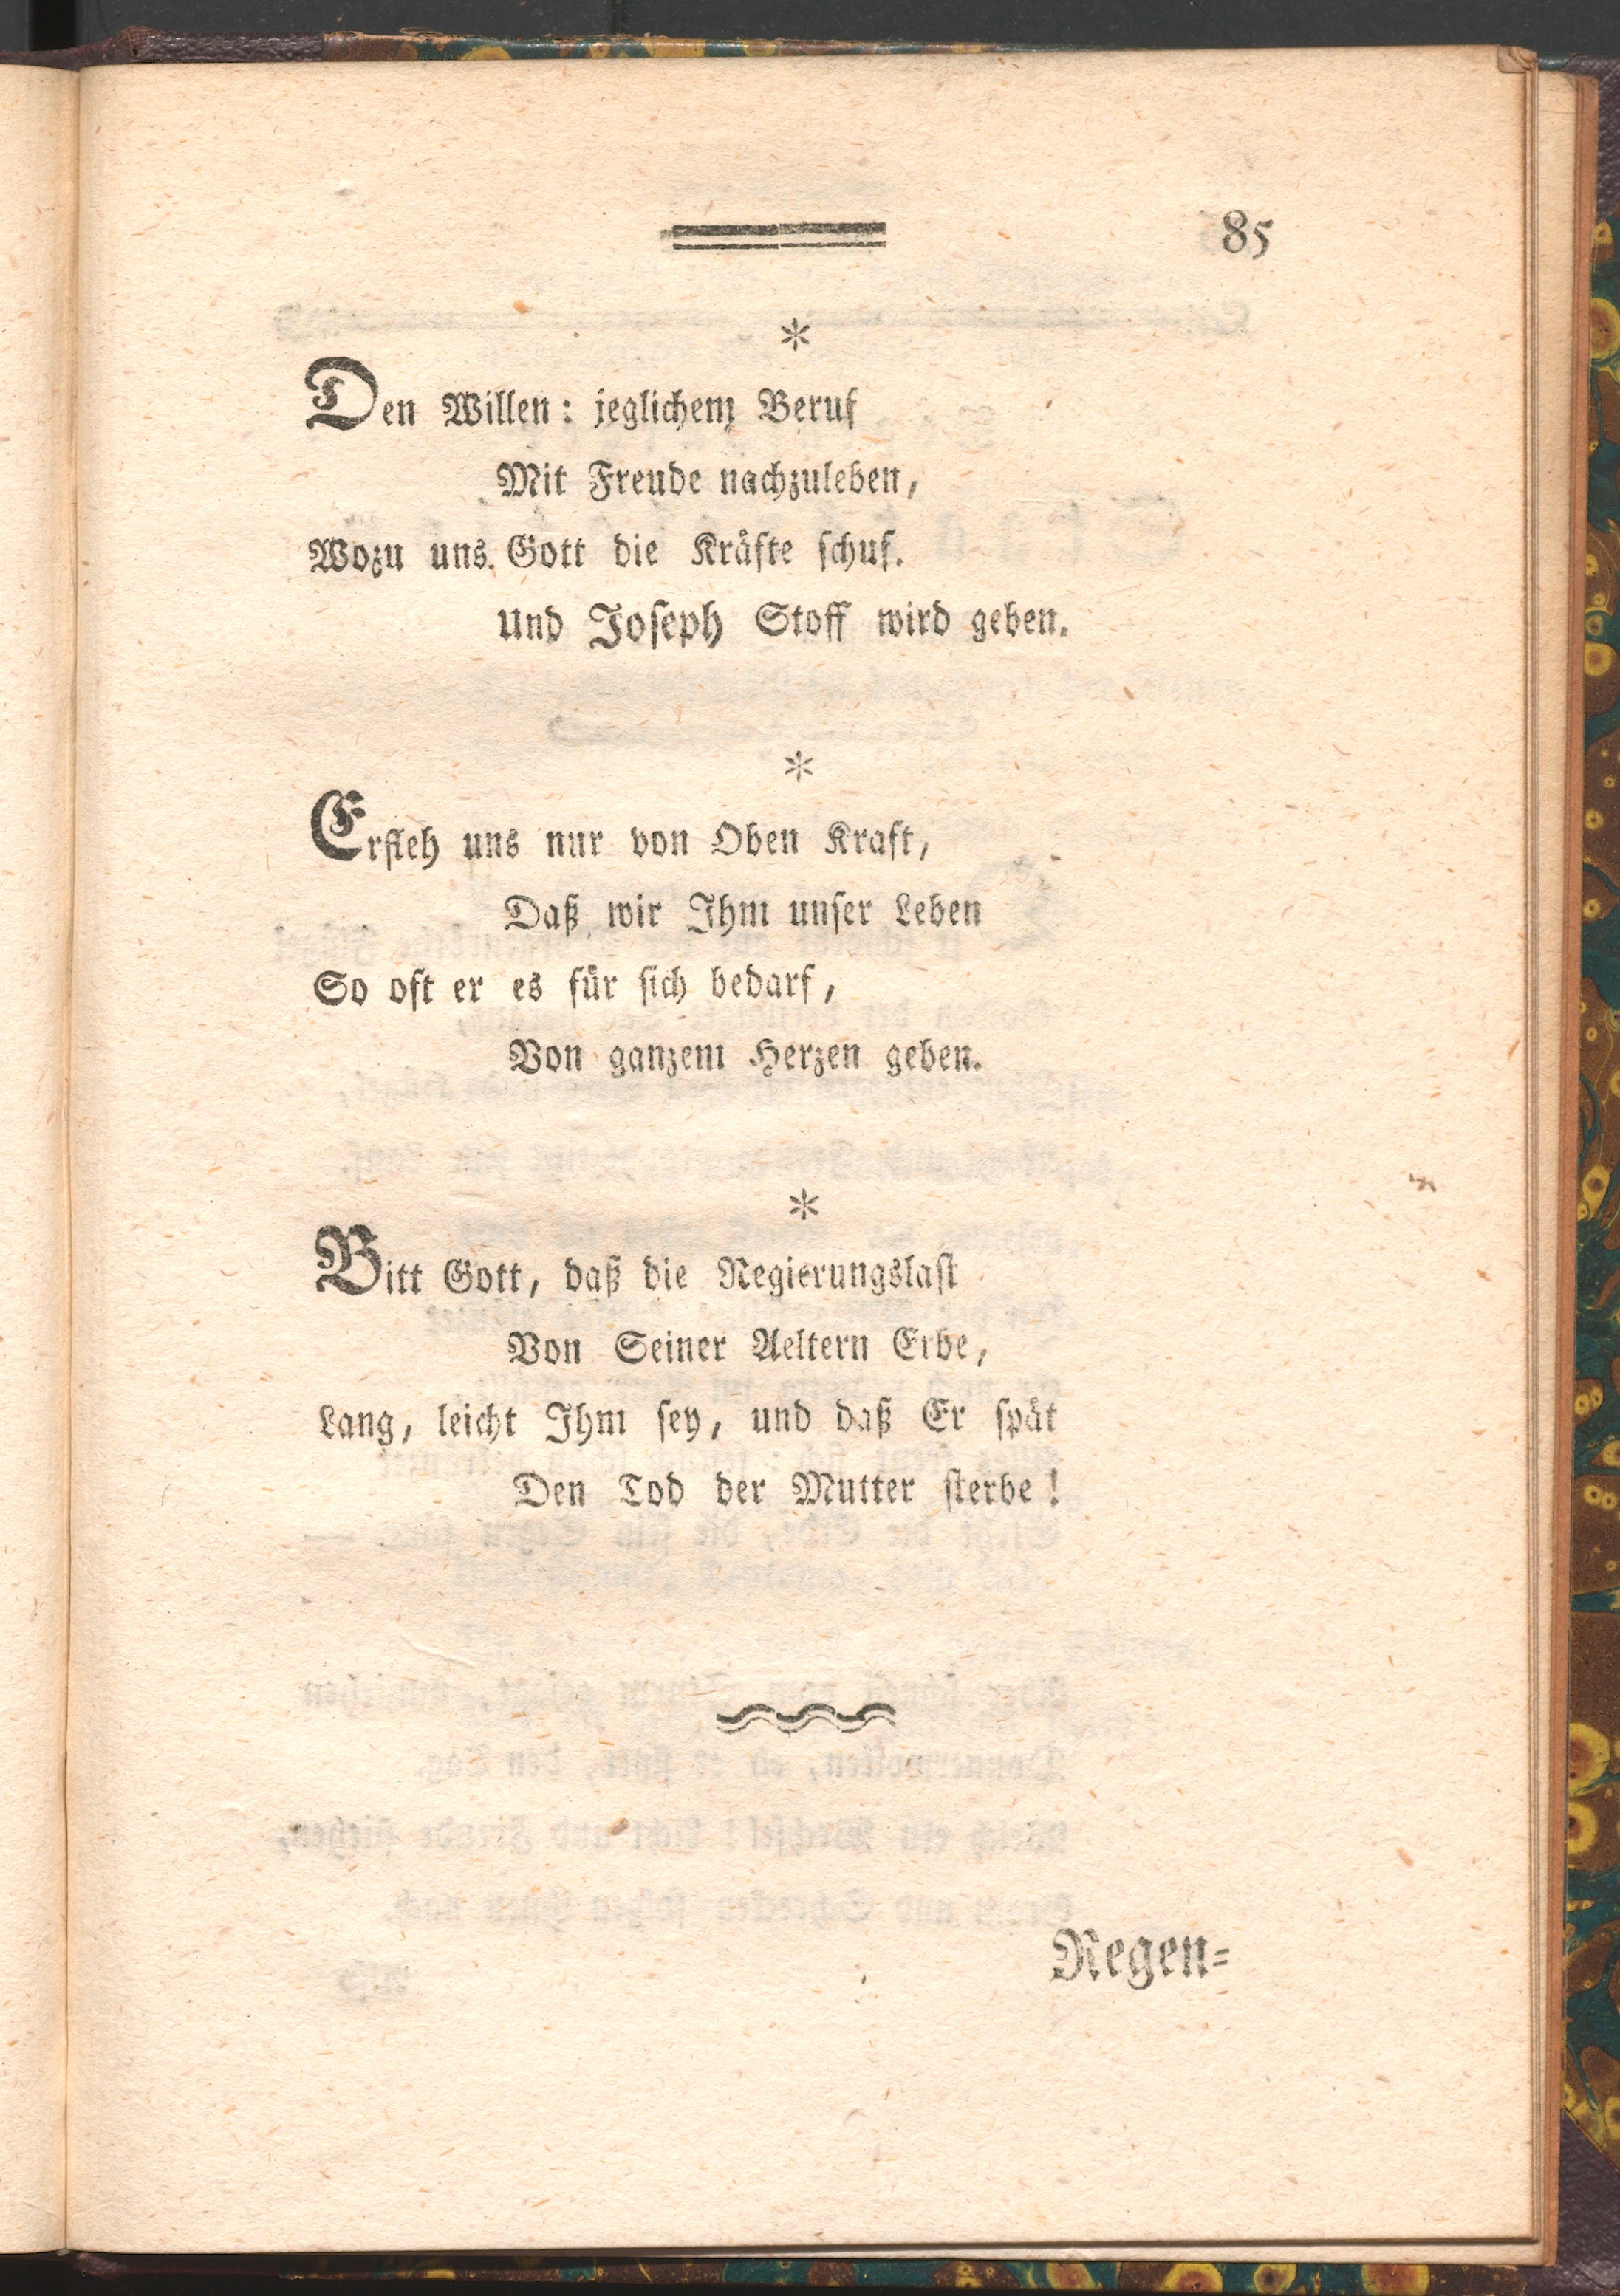 85
*
Den Willen: jeglichem Beruf
Mit Freude nachzuleben,
Wozu uns Gott die Kräfte schuf.
Und Joseph Stoff wird geben.
*
Erfleh uns nur von Oben Kraft,
Daß wir Ihm unser Leben
So oft er es für sich bedarf,
Von ganzem Herzen geben.
*
Bitt Gott, daß die Regierungslast
Von Seiner Aeltern Erbe,
Lang, leicht Ihm sey, und daß Er spät
Den Tod der Mutter sterbe!
Regen-